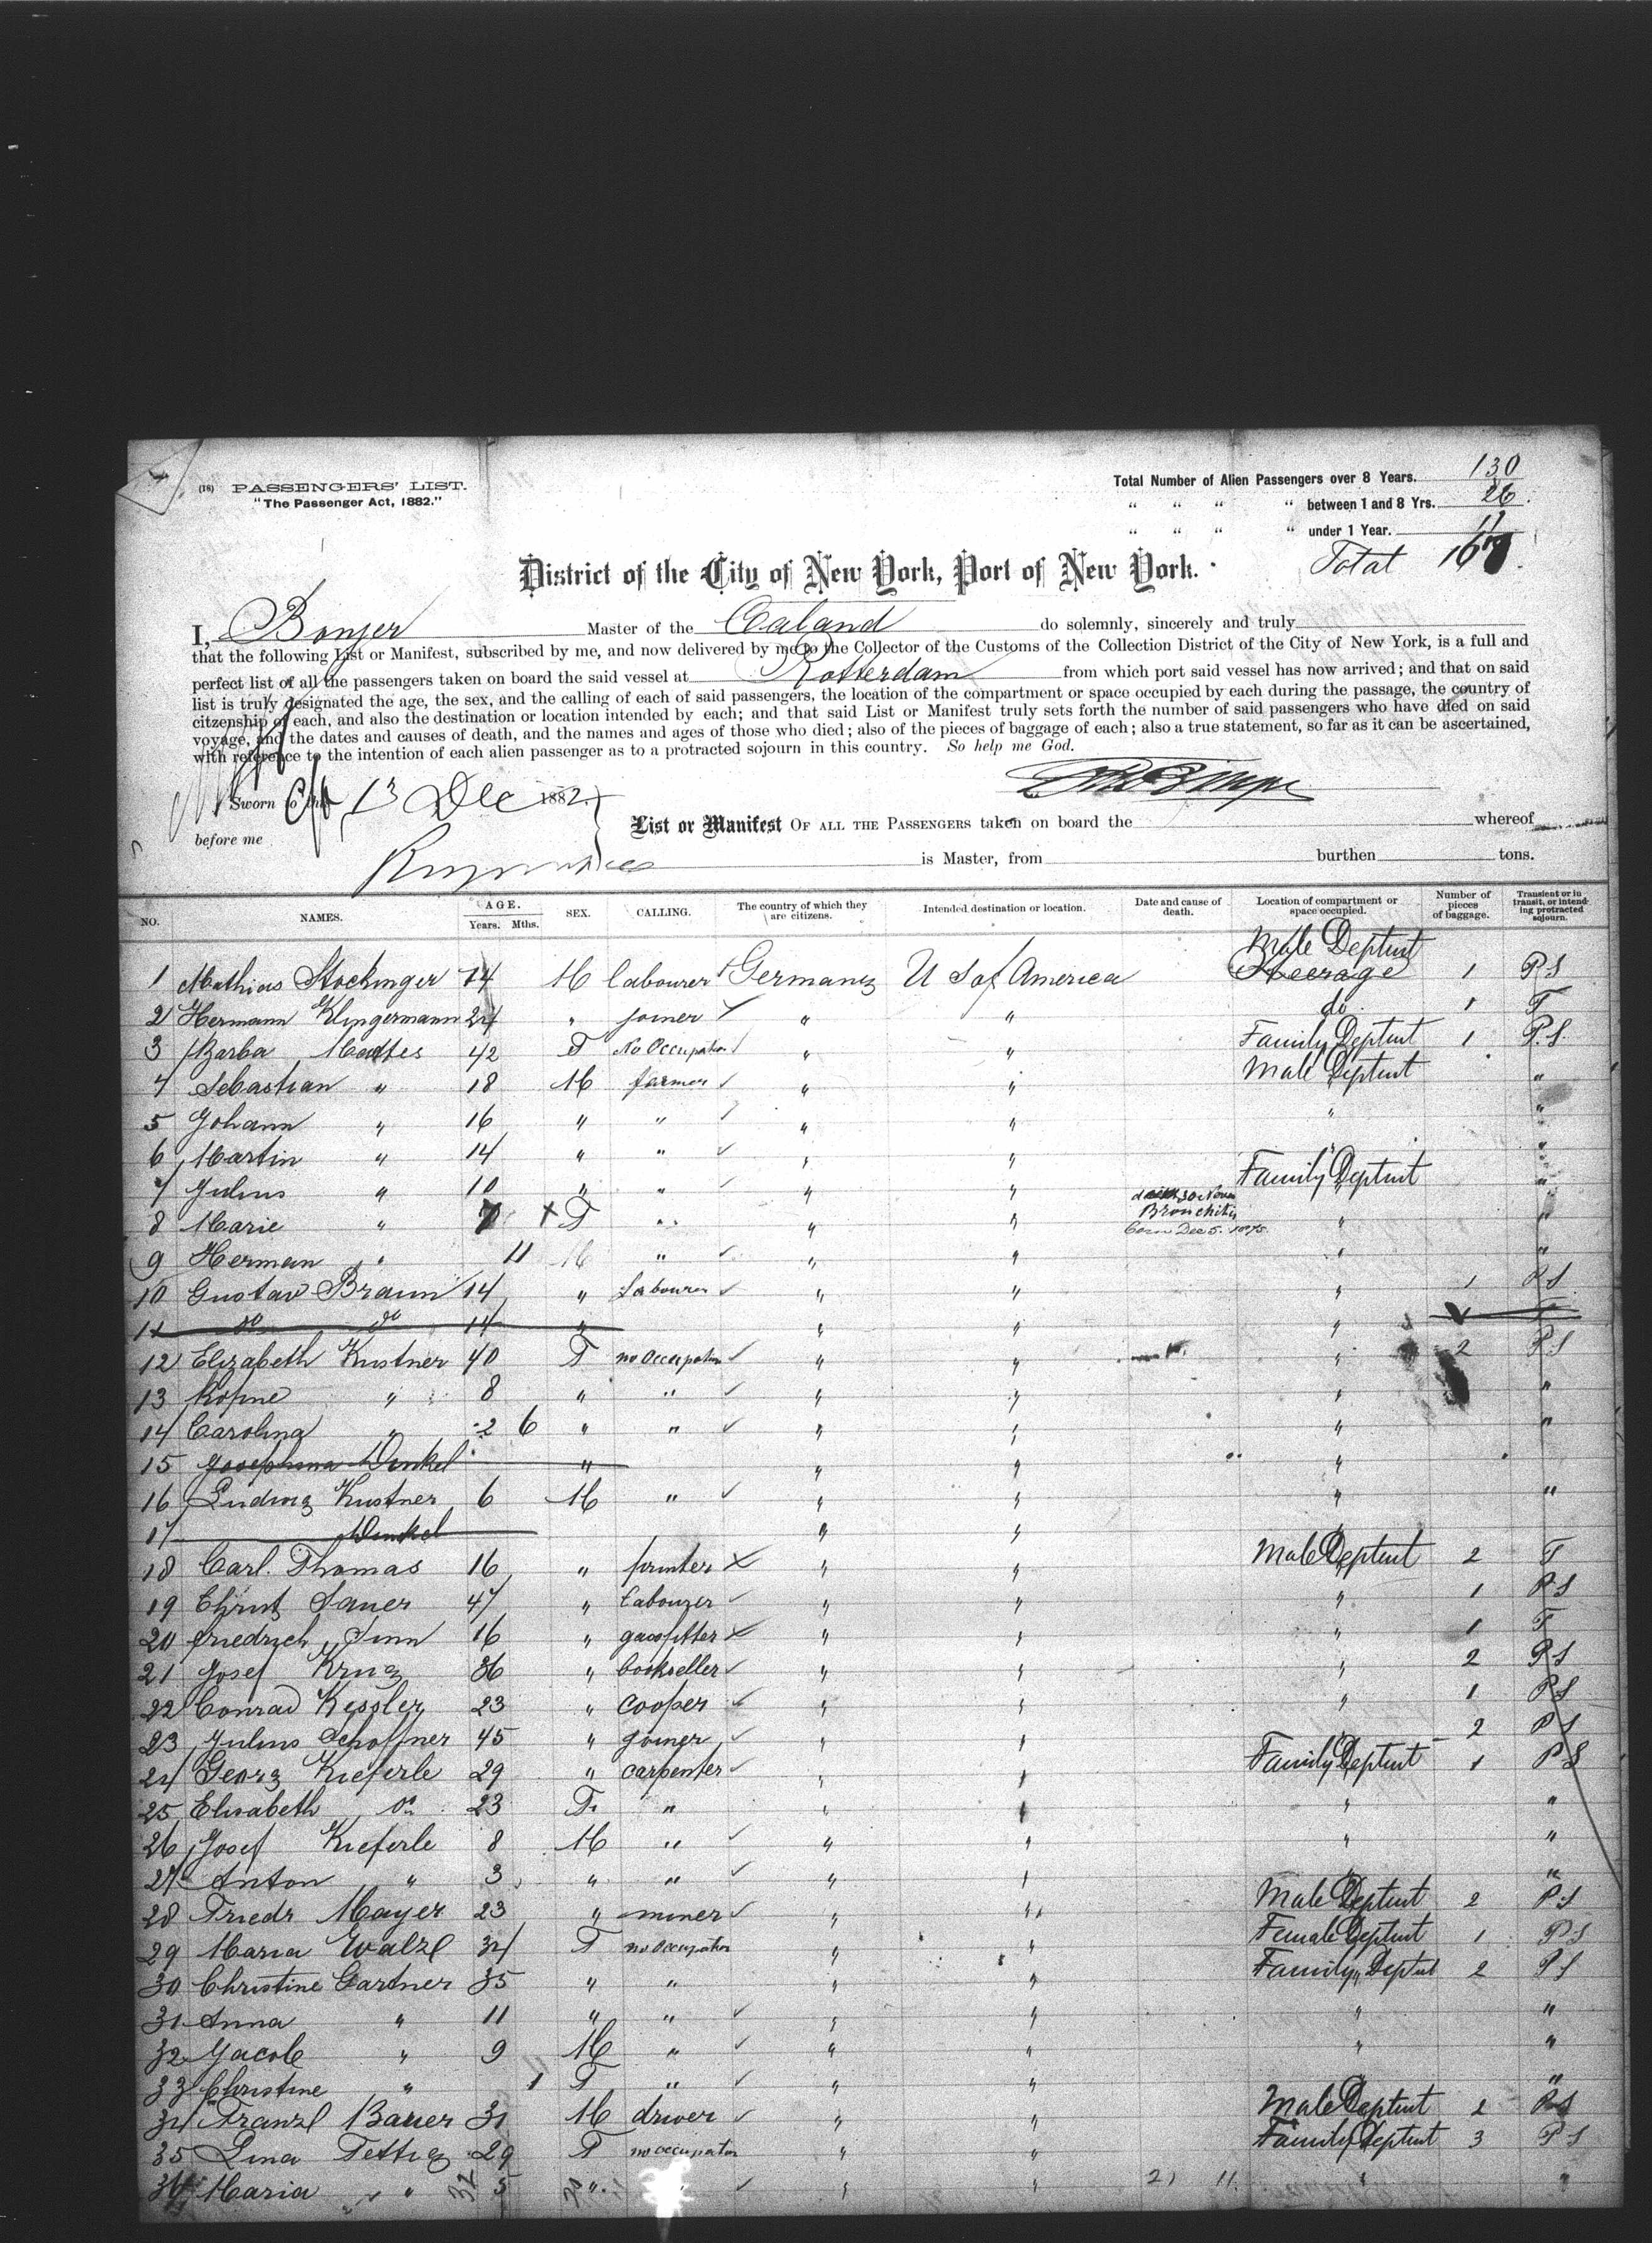 (16) PASSENGERS' LIST.
"The Passenger Act, 1882."
Total Number of Alien Passengers over 8 Years. 130
" " " " between 1 and 8 Yrs. 26
" " " " under 1 Year. 11
Total 167
District of the City of New York, Port of New York.
I, Bonjer Master of the Caland do solemnly, sincerely and truly
that the following List or Manifest, subscribed by me, and now delivered by me to the Collector of the Customs of the Collection District of the City of New York, is a full and
perfect list of all the passengers taken on board the said vessel at Rotterdam from which port said vessel has now arrived; and that on said
list is truly designated the age, the sex, and the calling of each of said passengers, the location of the compartment or space occupied by each during the passage, the country of
citzenship of each, and also the destination or location intended by each; and that said List or Manifest truly sets forth the number of said passengers who have died on said
voyage, and the dates and causes of death, and the names and ages of those who died; also of the pieces of baggage of each; also a true statement, so far as it can be ascertained,
with reference to the intention of each alien passenger as to a protracted sojourn in this country. So help me God.
Sworn to this 13 Dec 1882
before me
List or Manifest OF ALL THE PASSENGERS taken on board the whereof
is Master, from burthen tons.
NO. NAMES. AGE. Years. Mths. SEX. CALLING. The country of which they are citizens. Intended destination or location. Date and cause of death. Location of compartment or space occupied. Number of pieces of baggage. Transient or in transit, or intending protracted sojourn.
1 Mathias Stockinger 74 M labourer Germany U S of America Male Deptmt Steerage 1 P S
2 Hermann Klingermann 24 " joiner " " do 1 T
3 Barba Mattes 42 F No Occupation " " Family Deptmt 1 P.S.
4 Sebastian " 18 M farmer " " Male Deptmt "
5 Johann " 16 " " " " " "
6 Martin " 14 " " " " " "
7 Julius " 10 " " " " Family Deptmt "
8 Marie " 7 F " " " 30 Nov Bronchitis born Dec 5. 1875. " "
9 Herman " 11 M " " " " "
10 Gustav Braun 14 " Labourer " " " 1 P S
11 do do 14 " " " "
12 Elizabeth Kustner 40 F no Occupation " " " 2 P S
13 Rosine " 8 " " " " " "
14 Carolina " 2 6 " " " " " "
15 Josephina Dinkel " " " "
16 Ludwig Kustner 6 M " " " " "
17 Dinkel " " "
18 Carl. Thomas 16 " printer " " Male Deptmt 2 T
19 Christ Sauer 47 " labourer " " " 1 P S
20 Friedrich Sinn 16 " gasfitter " " " 1 T
21 Josef Krug 36 " bookseller " " " 2 P S
22 Conrad Kessler 23 " cooper " " " 1 P S
23 Julius Schoffner 45 " joiner " " " 2 P S
24 Georg Kieferle 29 " carpenter " " Family Deptmt 1 P S
25 Elisabeth do 23 F. " " " " "
26 Josef Kieferle 8 M " " " " "
27 Anton " 3 " " " " " "
28 Friedr Mayer 23 " miner " " Male Deptmt 2 P S
29 Maria Walzl 34 F no Occupation " " Female Deptmt 1 P S
30 Christine Gartner 35 " " " " Family Deptmt 2 P S
31 Anna " 11 " " " " " "
32 Jacob " 9 M " " " " "
33 Christine " 1 F " " " "
34 Franzl Bauer 31 M driver " " Male Deptmt 2 P S
35 Lina Fettig 29 F no occupation " " Family Deptmt 3 P S
36 Maria " 5 " " " " "